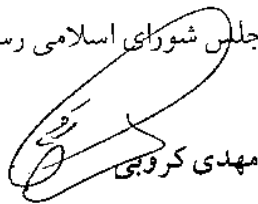 جلس شورای اسلامی رس
مهدی کروبی